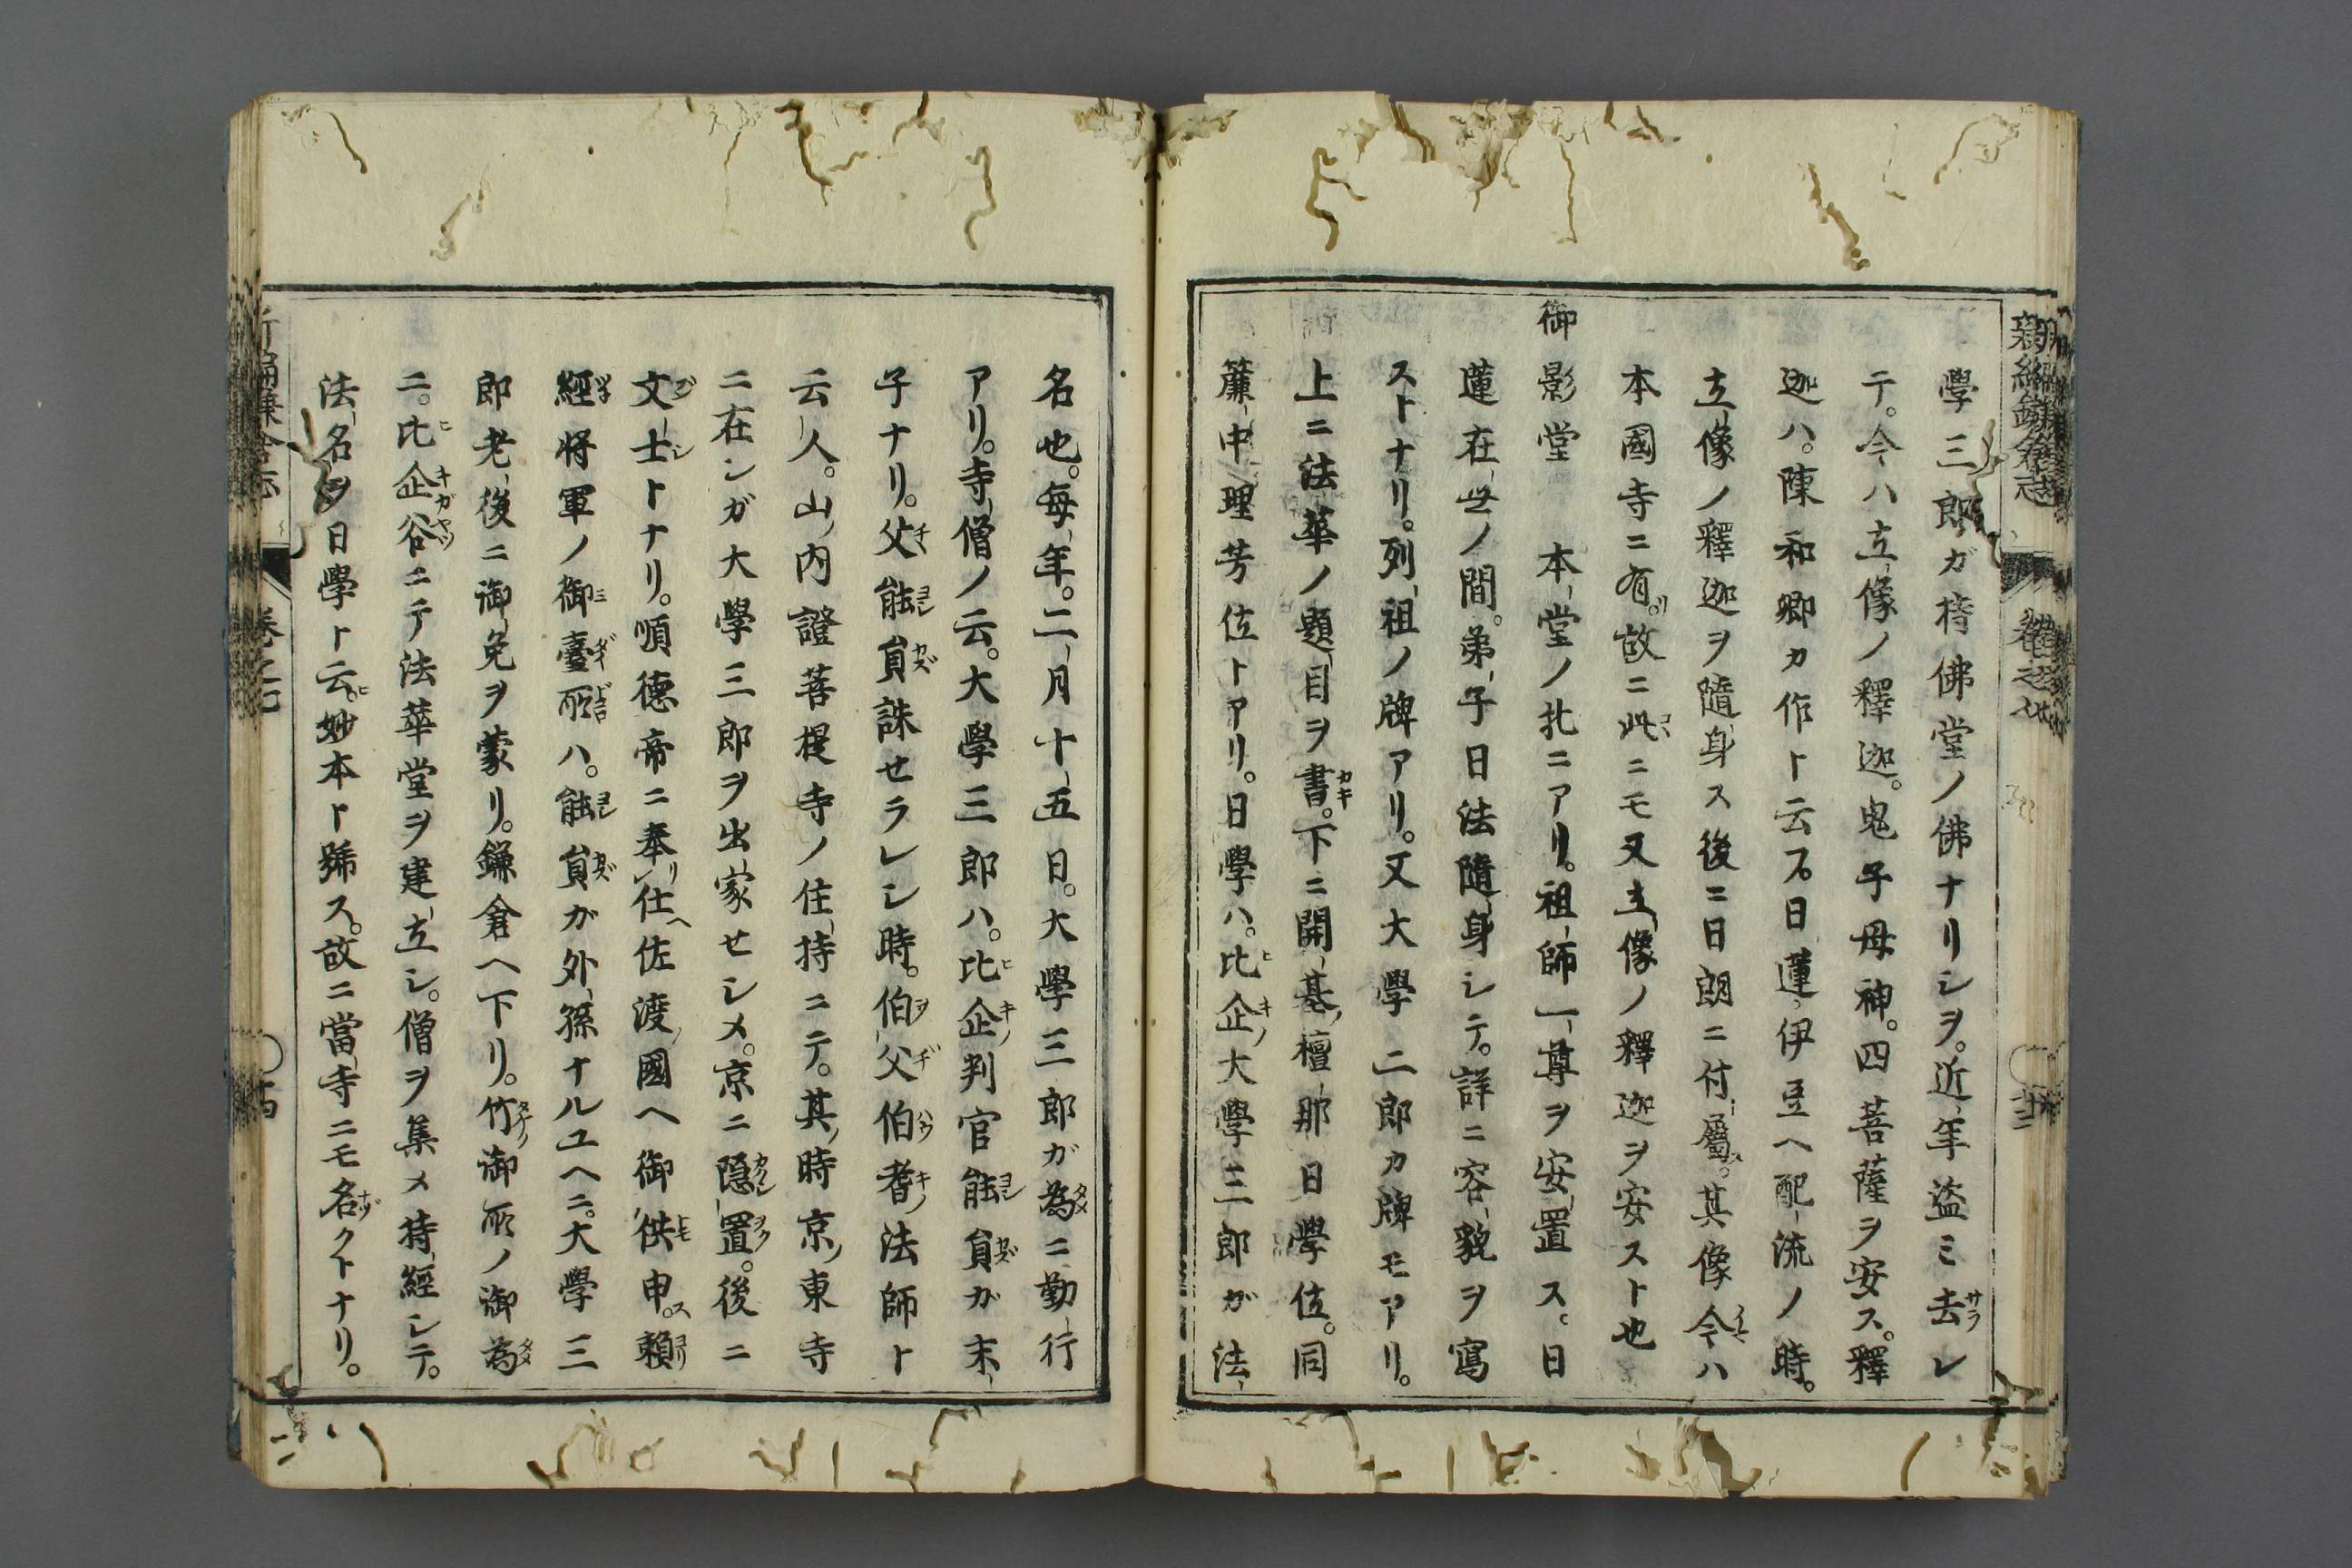 學三郎ガ持佛堂ノ佛ナリシヲ。近年盜ミ去レ
テ。今ハ立像ノ釋迦。鬼子母神。四菩薩ヲ安ス。釋
迦ハ。陳和卿カ作ト云フ。日蓮伊豆ヘ配流ノ時。
立像ノ釋迦ヲ隨身ス後ニ日朗ニ付屬ス。其像今ハ
本國寺ニ有リ。故ニ此ニモ又立像ノ釋迦ヲ安スト也
御影堂 本堂ノ北ニアリ。祖師一尊ヲ安置ス。日
蓮在世ノ間。弟子日法隨身シテ。詳ニ容貌ヲ寫
ストナリ。列祖ノ牌アリ。又大學二郎カ牌モアリ。
上ニ法華ノ題目ヲ書。下ニ開基檀那日學位。同
簾中理芳位トアリ。日學ハ。比企大學三郎ガ法
名也。每年。二月十五日。大學三郎ガ為ニ勤行
アリ。寺僧ノ云。大學三郎ハ。比企判官能員ガ末
子ナリ。父能員誅セラレシ時。伯父伯耆法師ト
云人。山内證菩提寺ノ住持ニテ。其時京ノ東寺
ニ在シガ大學三郎ヲ出家セシメ。京ニ隠置。後ニ
文士トナリ。順德帝ニ奉リ仕ヘ佐渡國ヘ御供申ス。賴
經將軍ノ御臺所ハ。能員ガ外孫ナルユヘニ。大學三
郎老後ニ御免ヲ蒙リ。鎌倉ヘ下リ。竹御所ノ御為
ニ。比企谷ニテ法華堂ヲ建立シ。僧ヲ集メ持經シテ。
法名ヲ日學ト云ヒ。妙本ト號ス。故ニ當寺ニモ名クトナリ。
新編鎌倉志 卷之七